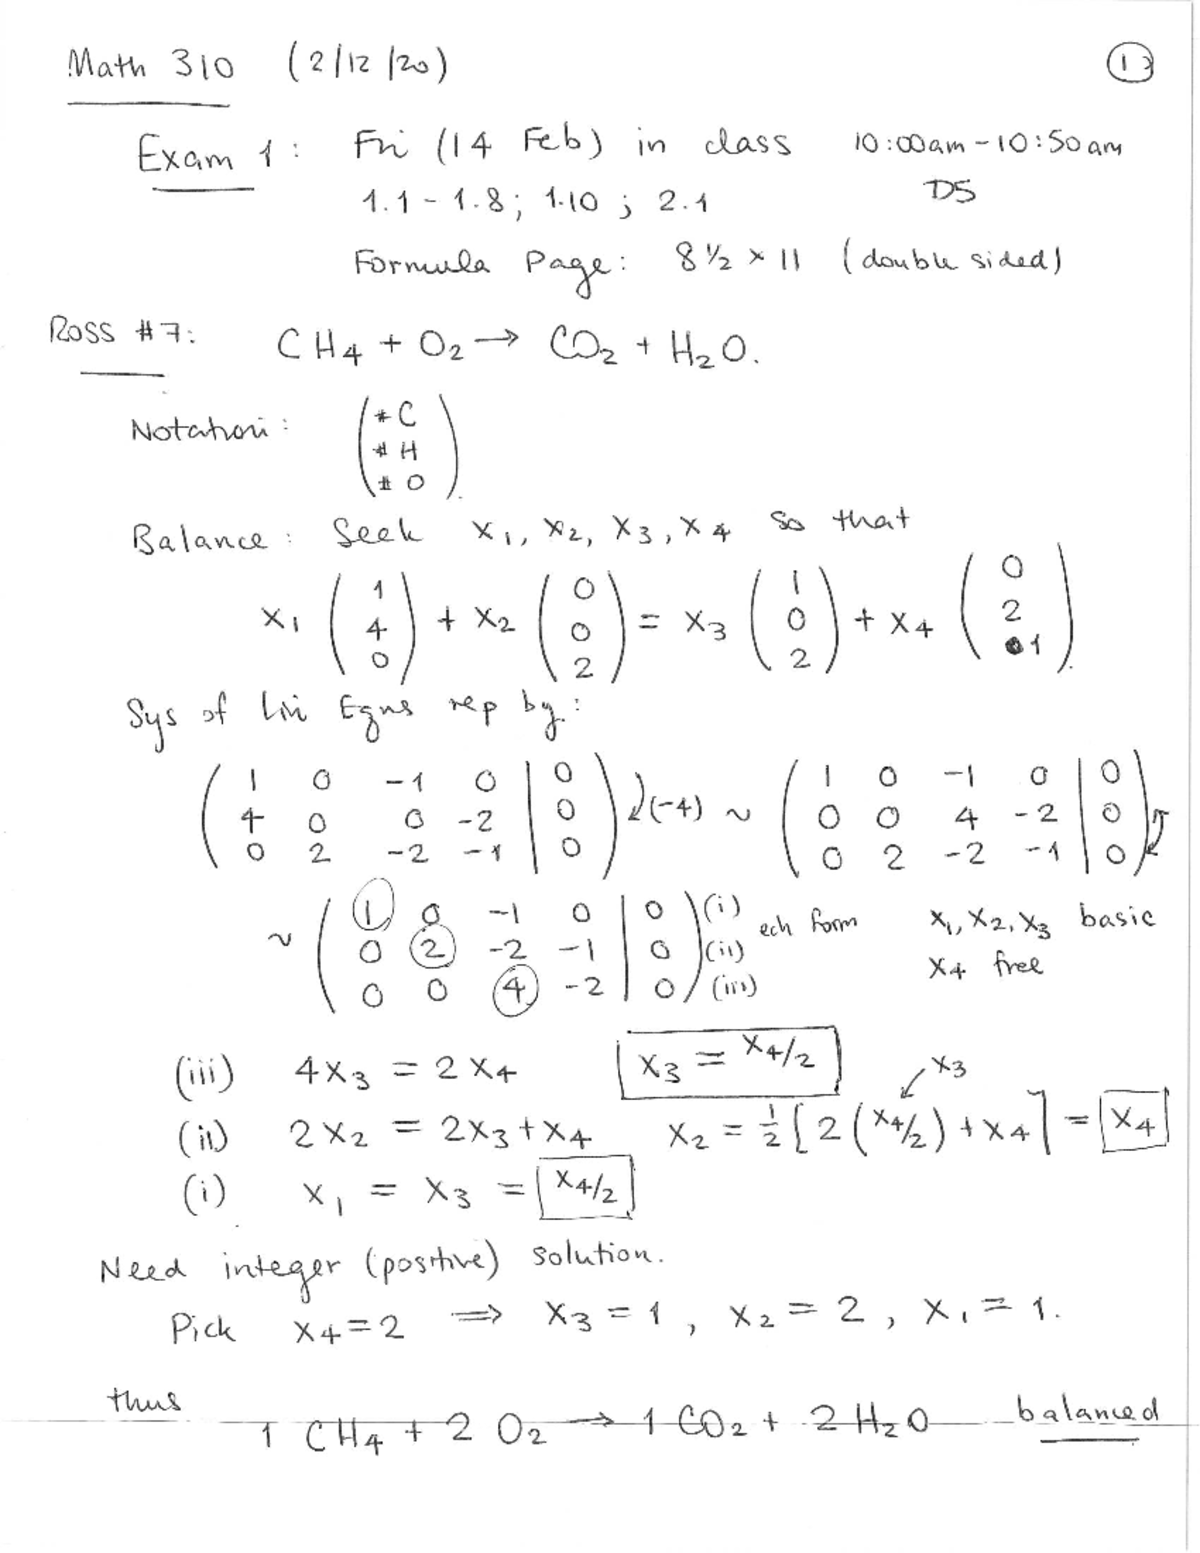 Math 310 (2/12/20) 1
Exam 1: Fri (14 Feb) in class 10:00am-10:50am
1.1 - 1.8; 1.10 ; 2.1 DS
Formula Page: 8 1/2 × 11 (double sided)
Ross #7: CH4 + O2 → CO2 + H2O.
Notation: ( # C
# H
# O )
Balance: Seek x1, x2, x3, x4 so that
x1 (1 4 0) + x2 (0 0 2) = x3 (1 0 2) + x4 (0 2 1)
Sys of lin Eqns rep by:
( 1 0 -1 0 | 0 ) ( 1 0 -1 0 | 0 )
( 4 0 0 -2 | 0 ) (-4) ~ ( 0 0 4 -2 | 0 )
( 0 2 -2 -1 | 0 ) ( 0 2 -2 -1 | 0 )
~ ( 1 0 -1 0 | 0 ) (i) ech form x1, x2, x3 basic
( 0 2 -2 -1 | 0 ) (ii) x4 free
( 0 0 4 -2 | 0 ) (iii)
(iii) 4x3 = 2x4 x3 = x4/2 x3
(ii) 2x2 = 2x3 + x4 x2 = 1/2 [2(x4/2) + x4] = x4
(i) x1 = x3 = x4/2
Need integer (positive) solution.
Pick x4=2 ⟹ x3 = 1, x2 = 2, x1 = 1.
thus
1 CH4 + 2 O2 → 1 CO2 + 2 H2O balanced